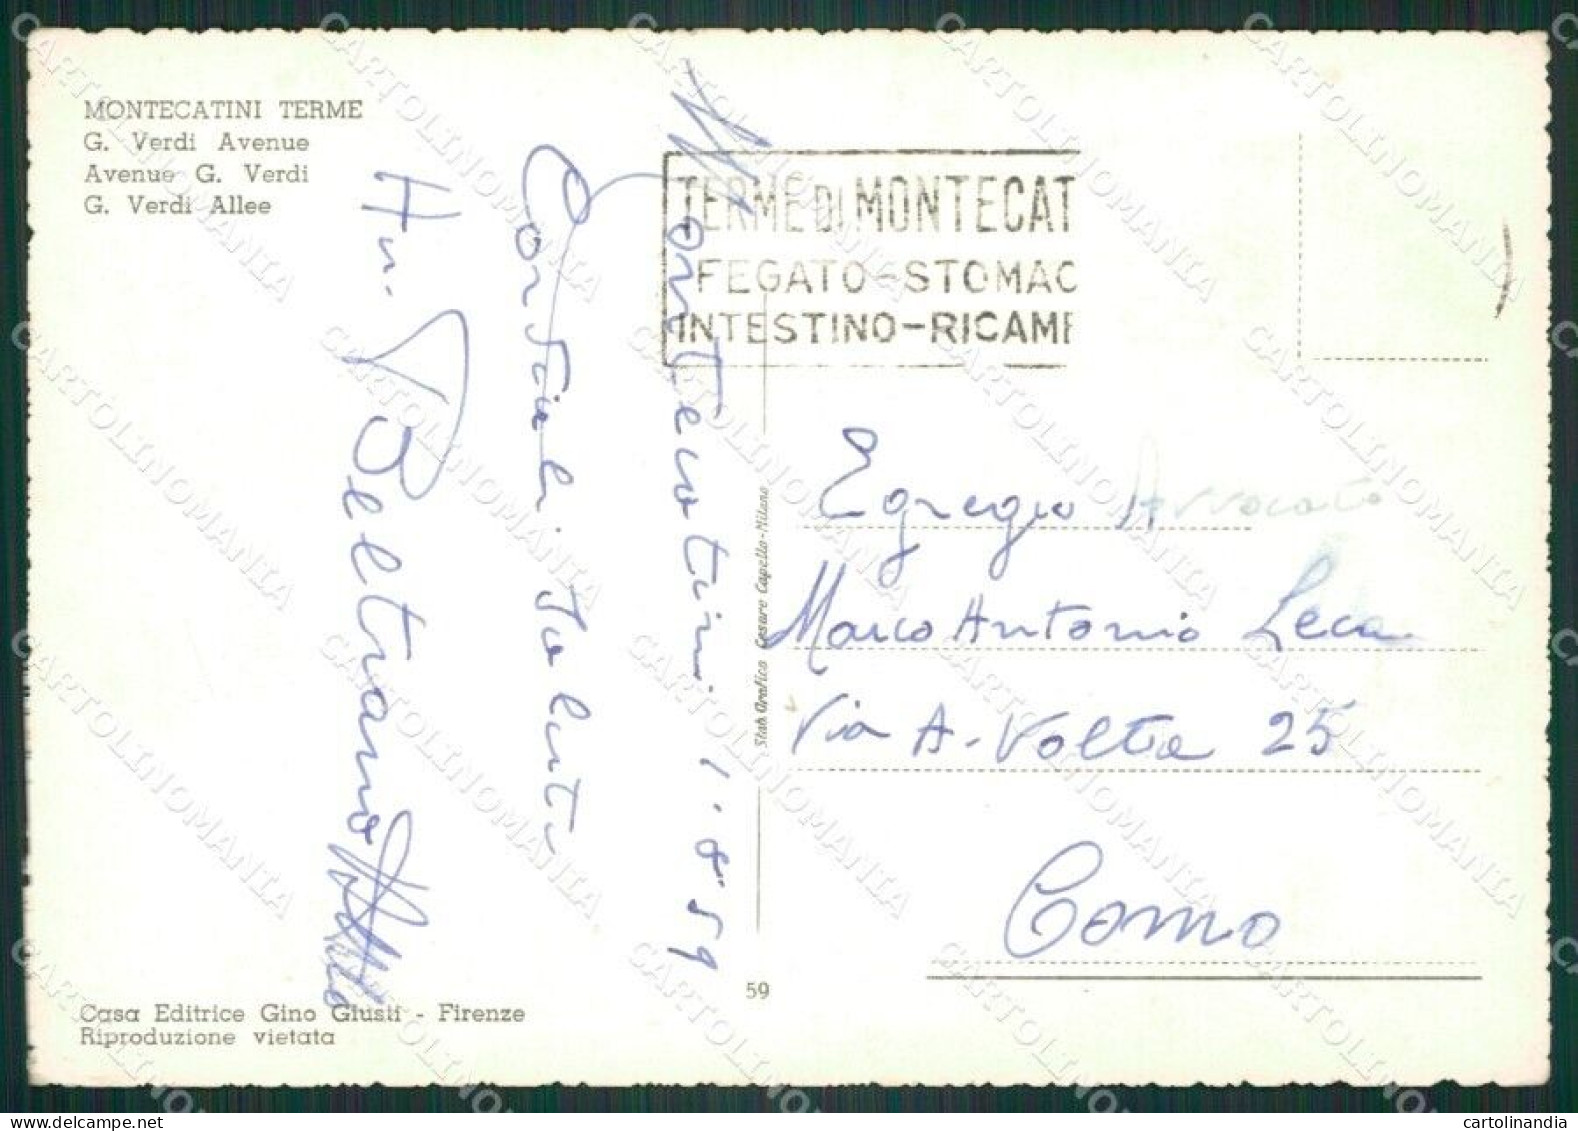 MONTECATINI TERME
G. Verdi Avenue
Avenue G. Verdi
G. Verdi Allee
TERME DI MONTECAT
FEGATO-STOMAC
INTESTINO-RICAM
Montecatini, 1.8.59
Cordiali Saluti
Beltrano
Egregio Avvocato
Marco Antonio Leca
Via A. Volta 25
Como
Stab. Grafico Cesare Capello-Milano
59
Casa Editrice Gino Giusti - Firenze
Riproduzione vietata
CARTOLINOMANIA
cartolinandia